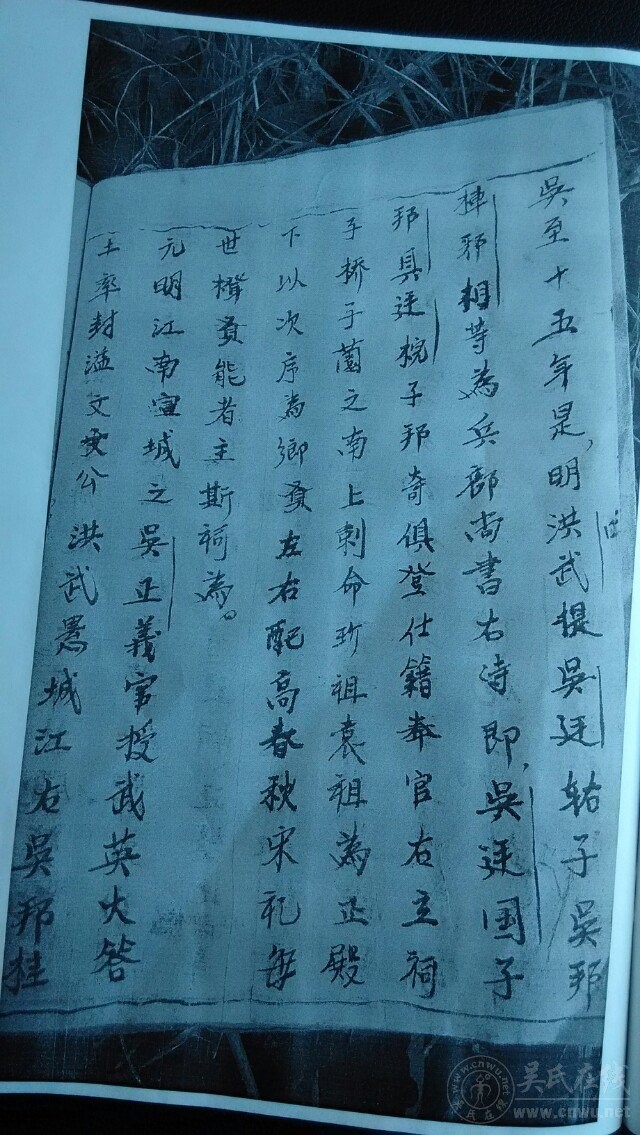 吳至十五年是，明洪武提吳廷轱子吳邦
棟邪相等為兵部尚書右侍即，吳廷国子
邦具廷梡子邦奇俱登仕籍奉官右主祠
于桥子蘭之南上刺命珍祖袁祖為正殿
下以次序為鄉贠左右配高春秋宋礼每
世楫贠能者主斯祠為。
元明江南宣城之吳正義官授武英大答
土率封溢文安公洪武愚城江右吳邦桂
吴氏在线
www.cnwu.net